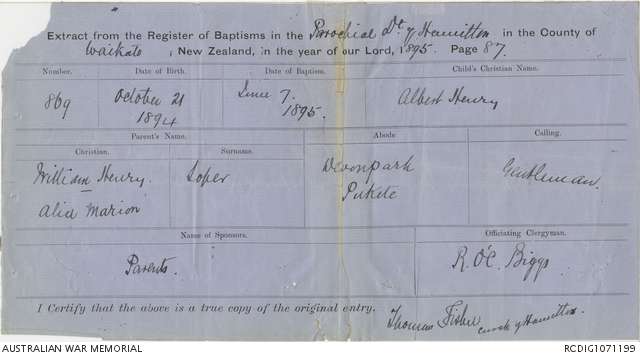 Extract from the Register of Baptisms in the Parochial Dt. of Hamilton in the County of
Waikato, New Zealand, in the year of our Lord, 1895. Page 87.
Number. Date of Birth. Date of Baptism. Child's Christian Name.
869 October 21 1894 June 7. 1895. Albert Henry
Parent's Name. Abode Calling.
Christian. Surname.
William Henry. Soper Devonpark Gentleman.
Alia Marion Pukete
Name of Sponsors. Officiating Clergyman.
Parents. R. O'C. Biggs
I Certify that the above is a true copy of the original entry. Thomas Fisher curate of Hamilton.
AUSTRALIAN WAR MEMORIAL RCDIG1071199